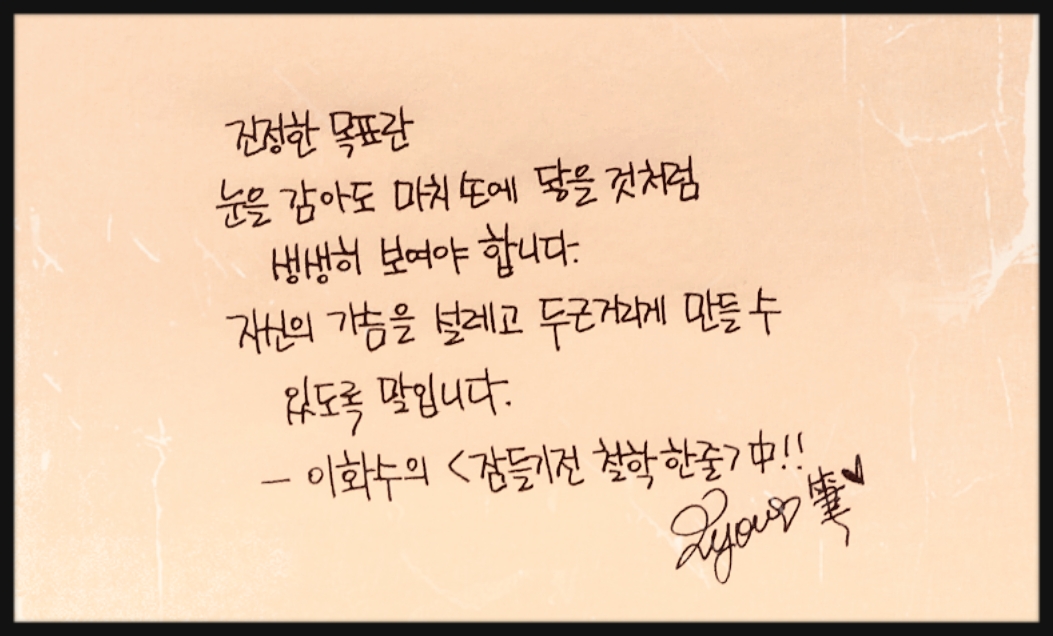 진정한 목표란
눈을 감아도 마치 손에 닿을 것처럼
생생히 보여야 합니다.
자신의 가슴을 설레고 두근거리게 만들 수
있도록 말입니다.
- 이화수의 <잠들기전 철학 한줄> 中!!